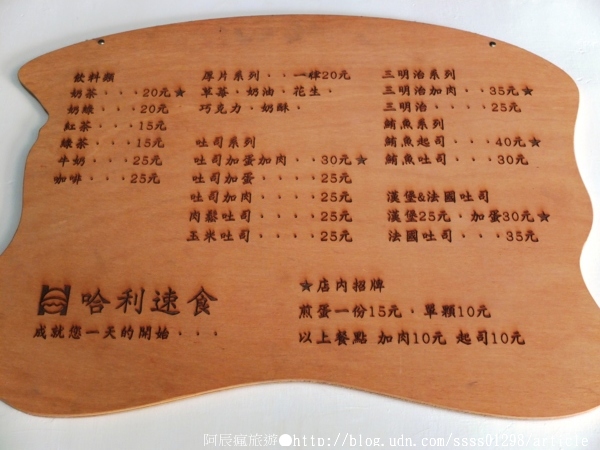 飲料類
奶茶···20元★
奶綠···20元
紅茶···15元
綠茶···15元
牛奶···25元
咖啡···25元
厚片系列··一律20元
草莓、奶油、花生、
巧克力、奶酥、
吐司系列
吐司加蛋加肉···30元★
吐司加蛋····25元
吐司加肉····25元
肉鬆吐司····25元
玉米吐司····25元
三明治系列
三明治加肉···35元★
三明治····25元
鮪魚系列
鮪魚起司···40元★
鮪魚吐司···30元
漢堡&法國吐司
漢堡25元，加蛋30元★
法國吐司···35元
哈利速食
成就您一天的開始···
★店內招牌
煎蛋一份15元，單顆10元
以上餐點 加肉10元 起司10元
阿辰窩旅遊●http://blog.udn.com/ssss01298/article